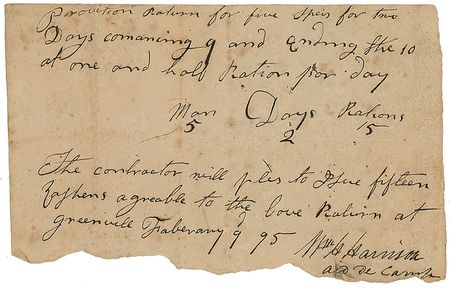 Provition Return for five Speis for two
Days comancing 9 and Ending the 10
at one and half Ration por day
Man Days Rations
5 2 15
The contractor will ples to Isue fifteen
Rashens agreable to the bove Return at
greenvill Faberary 9 95
Wm H Harrison
aid de Camp